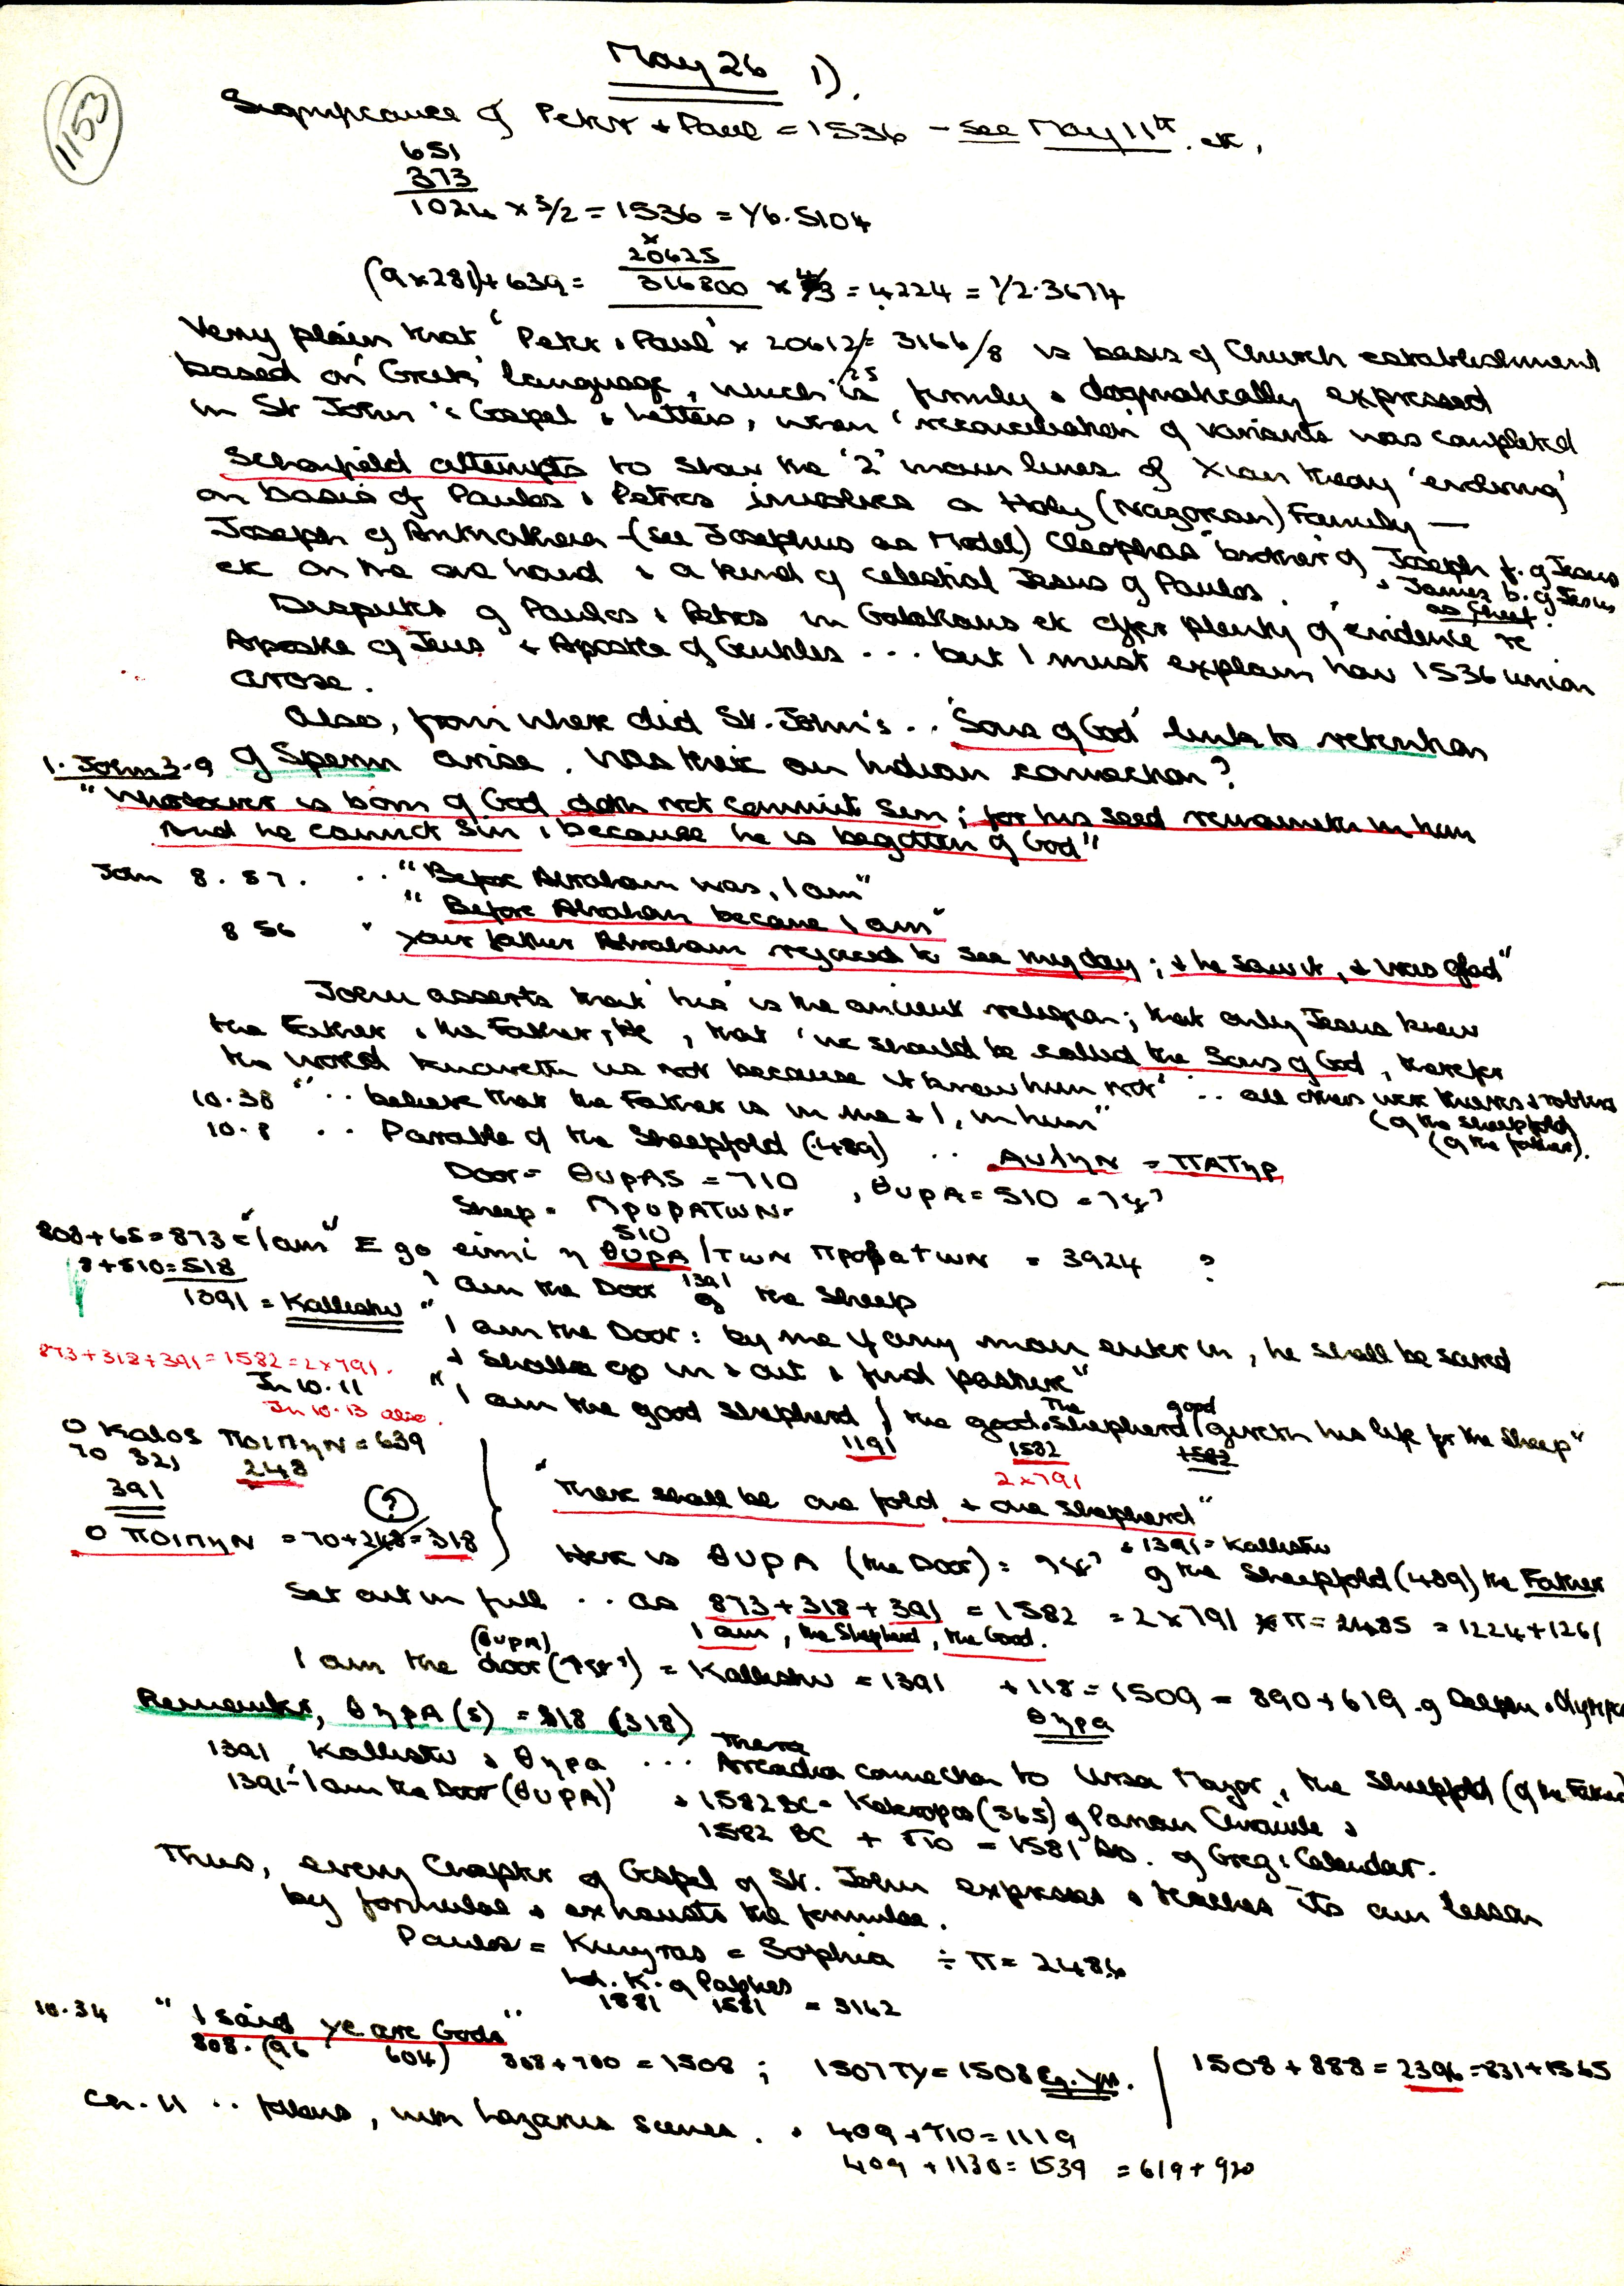 1153
May 26 1).
Significance of Peter + Paul = 1536 - see May 11th. etc,
651
373
1024 x 3/2 = 1536 = Y6.5104
x
20625
(9x281)+639 = 316800 x 4/3 = 4224 = 1/2.3674
Very plain that 'Peter & Paul' x 20612/25 = 3168/8 is basis of Church establishment
based on 'Greek' language, which is firmly & dogmatically expressed
in St John's Gospel & Letters, when 'reconciliation' of variants was completed
Schonfield attempts to show the '2' main lines of Xian theory 'enduring'
on basis of Paulos & Petros involves a Holy (Nazorean) Family -
Joseph of Arimathea - (see Josephus as Model) Cleophas "brother" of Joseph f. of Jesus
& James b. of Jesus
as Chief.
etc on the one hand & a kind of celestial Jesus of Paulos.
Disputes of Paulos & Petros in Galatians etc offer plenty of evidence re
Apostle of Jews & Apostle of Gentiles ... but I must explain how 1536 union
arose.
Also, from where did St. John's .. 'Sons of God' links to retention
of Sperm arise. Was there an Indian connection?
1. John 3.9
"Whosoever is born of God doth not commit sin; for his seed remaineth in him
And he cannot sin, because he is begotten of God"
John 8.57. .. "Before Abraham was, I am"
"Before Abraham became I am"
8 56 "Your father Abraham rejoiced to see my day; & he saw it, & was glad"
John asserts that 'his' is the ancient religion; that only Jesus knew
the Father & the Father, He, that 'we should be called the Sons of God, therefor
the world knoweth us not because it knew him not' .. all others were thieves & robbers
(of the sheepfold)
(of the father).
10.38 ".. believe that the Father is in me & I, in him"
10.8 .. Parable of the Sheepfold (489) .. AυληN = ΠΑΤηρ
Door = ΘυρΑS = 710, θυρΑ = 510
Sheep = ΠρορΑΤωN
510
808+65=873 = "I am" Ε go eimi η ΘυρΑ / Τωn ΠροβαΤωN = 3924 ?
8+510=518 I am the Door 1391 of the Sheep
1391 = Kallistw
"I am the Door: by me if any man enter in, he shall be saved
& shall go in & out & find pasture"
873+318+391=1582=2x791.
Jn 10.11
Jn 10.13 also.
"I am the good Shepherd / the good Shepherd / giveth his life for the Sheep"
The good
1191 1582
2x791
O Kalos ΠοιπηN = 639
70 321 248
391
(?)
O ΠοιπηN = 70+248=318
"There shall be one fold & one Shepherd"
& 1391 = Kallistw
Here is ΘυρΑ (the Door) = of the Sheepfold (489) the Father
Set out in full .. as 873+318+391 = 1582 = 2x791 x π = 2485 = 1224+1261
I am, the Shepherd, the Good.
(θυρΑ)
I am the door = Kallistw = 1391 + 118 = 1509 = 890+619 of Delphi & Olympia
Θηρα
Remember, θηρΑ(s) = 318 (318)
1391 Kallistw & Θηρα ... Thera
Arcadia connection to Ursa Major, the Sheepfold (of the Father)
1391 - 'I am the Door (θυρΑ)' & 1582 BC = Kekropos (365) of Parian Chronicle &
1582 BC + = 1581 AD. of Greg: Calendar.
Thus, every Chapter of Gospel of St. John expresses & teaches its own lesson
by formulae & exhausts the formulae.
Paulos = Kinyras = Sophia ÷ π = 2486
K. of Paphos
1881 1581 = 3162
10.34 "I said ye are Gods"
808. (96 604) 808+700 = 1508; 1507 TY = 1508 Eg. Yrs. / 1508+888 = 2396 = 831+1565
Ch. 11 .. follows, with Lazarus scenes. & 409 + 710 = 1119
409 + 1130 = 1539 = 619 + 920